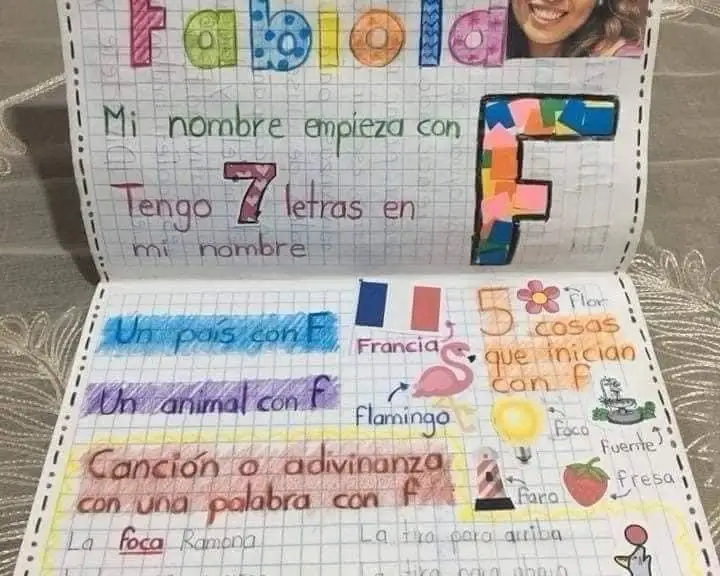 Fabiola
Mi nombre empieza con F
Tengo 7 letras en
mi nombre
Un país con F
Francia
Un animal con f
flamingo
5 cosas
que inician
con f
flor
foco
fuente
faro
fresa
Canción o adivinanza
con una palabra con f
La foca Ramona
La tira para arriba
La tira para abajo